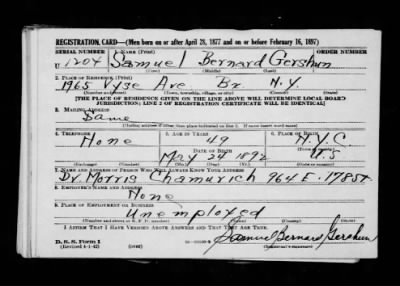 REGISTRATION CARD—(Men born on or after April 28, 1877 and on or before February 16, 1897)
SERIAL NUMBER 1. NAME (Print) ORDER NUMBER
U 1204 Samuel Bernard Gershun
(First) (Middle) (Last)
2. PLACE OF RESIDENCE (Print)
1965 Vyse Ave Br N.Y.
(Number and street) (Town, township, village, or city) (County) (State)
[THE PLACE OF RESIDENCE GIVEN ON THE LINE ABOVE WILL DETERMINE LOCAL BOARD
JURISDICTION; LINE 2 OF REGISTRATION CERTIFICATE WILL BE IDENTICAL]
3. MAILING ADDRESS
Same
[Mailing address if other than place indicated on line 2. If same insert word same]
4. TELEPHONE 5. AGE IN YEARS 6. PLACE OF BIRTH
None 49 N.Y.C.
DATE OF BIRTH
May 24 1892 U.S
7. NAME AND ADDRESS OF PERSON WHO WILL ALWAYS KNOW YOUR ADDRESS
Dr. Morris 964 E. 178 St
8. EMPLOYER'S NAME AND ADDRESS
None
9. PLACE OF EMPLOYMENT OR BUSINESS
Unemployed
I AFFIRM THAT I HAVE VERIFIED ABOVE ANSWERS AND THAT THEY ARE TRUE.
D. S. S. Form 1
(Revised 4-1-42) (over) Samuel Bernard Gershun